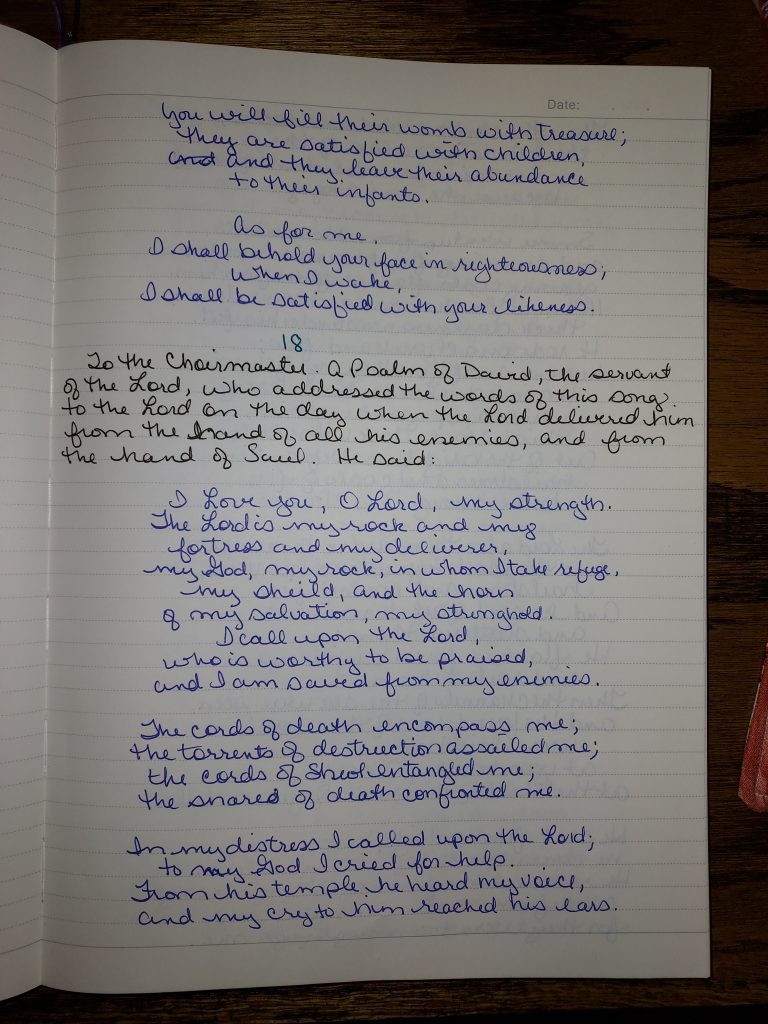 Date:
You will fill their womb with treasure;
they are satisfied with children,
and and they leave their abundance
to their infants.
As for me,
I shall behold your face in righteousness;
When I wake,
I shall be satisfied with your likeness.
18
To the Choirmaster. A Psalm of David, the servant
of the Lord, who addressed the words of this song
to the Lord on the day when the Lord delivered him
from the hand of all his enemies, and from
the hand of Saul. He said:
I Love you, O Lord, my strength.
The Lord is my rock and my
fortress and my deliverer,
my God, my rock, in whom I take refuge,
my sheild, and the horn
of my salvation, my stronghold.
I call upon the Lord,
who is worthy to be praised,
and I am saved from my enemies.
The cords of death encompass me;
the torrents of destruction assailed me;
the cords of Sheol entangled me;
the snares of death confronted me.
In my distress I called upon the Lord;
to my God I cried for help.
From his temple he heard my voice,
and my cry to him reached his ears.